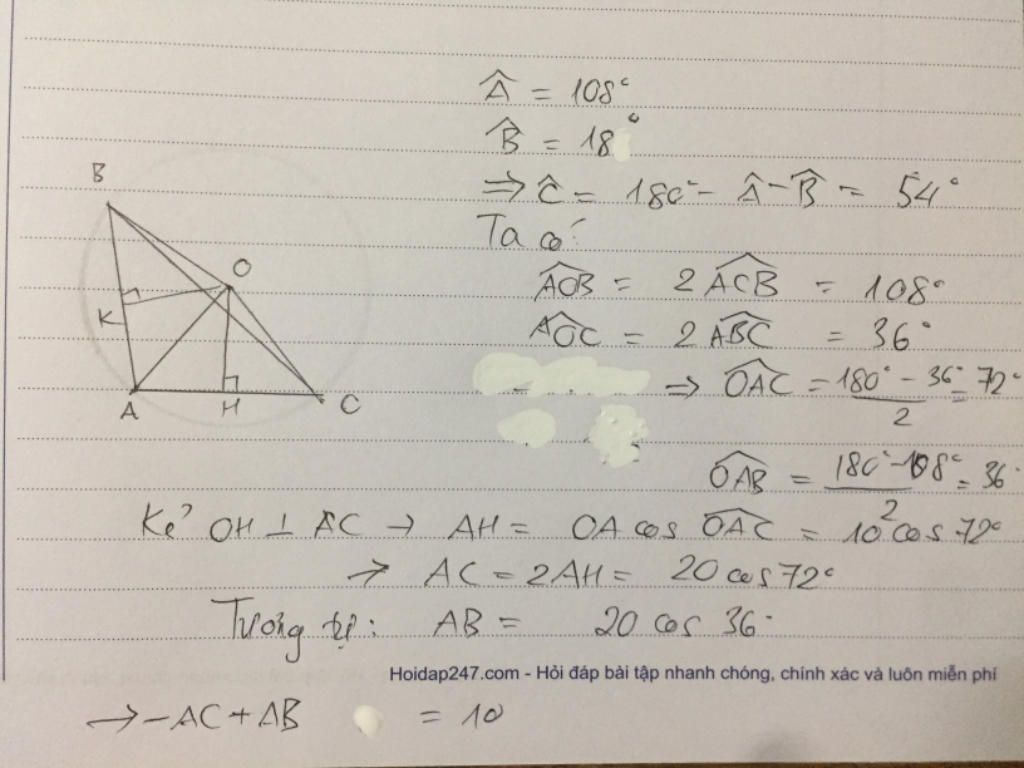 Â = 108°
B̂ = 18°
⇒ Ĉ = 180° - Â - B̂ = 54°
Ta có:
AOB = 2 ACB = 108°
AOC = 2 ABC = 36°
⇒ OAC = (180° - 36°)/2 = 72°
OAB = (180° - 108°)/2 = 36°
Kẻ OH ⊥ AC → AH = OA cos OAC = 10 cos 72°
→ AC = 2AH = 20 cos 72°
Tương tự: AB = 20 cos 36°
Hoidap247.com - Hỏi đáp bài tập nhanh chóng, chính xác và luôn miễn phí
→ -AC + AB = 10
B
O
K
A
H
C